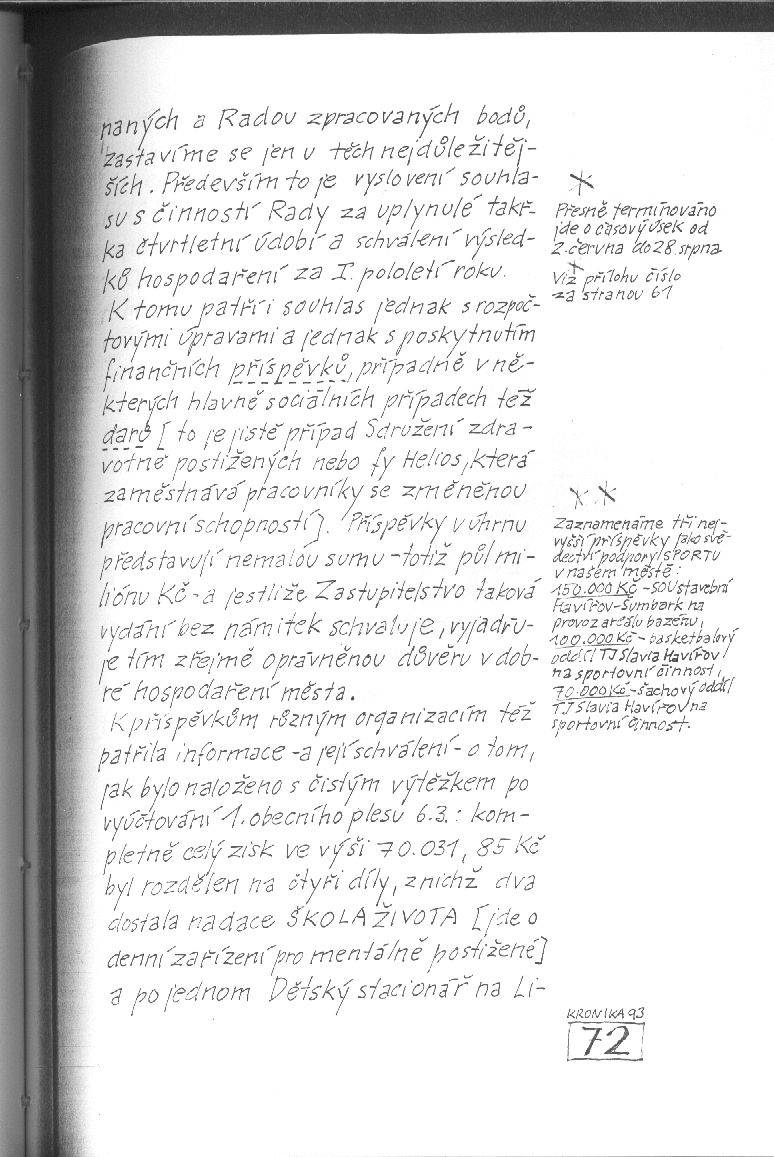 naných a Radou zpracovaných bodů,
zastavíme se jen u těch nejdůležitěj-
ších. Především to je vyslovení souhla-
su s činností Rady za uplynulé takř-
ka čtvrtletní údobí a schválení výsled-
ků hospodaření za I. pololetí roku.
K tomu patří i souhlas jednak s rozpoč-
tovými úpravami a jednak s poskytnutím
finančních příspěvků, případně v ně-
kterých hlavně sociálních případech též
darů [to je jistě případ Sdružení zdra-
votně postižených nebo fy Helios, která
zaměstnává pracovníky se změněnou
pracovní schopností]. Příspěvky v úhrnu
představují nemalou sumu - totiž půl mi-
liónu Kč - a jestliže Zastupitelstvo taková
vydání bez námitek schvaluje, vyjadřu-
je tím zřejmě oprávněnou důvěru v dob-
ré hospodaření města.
K příspěvkům různým organizacím též
patřila informace - a její schválení - o tom,
jak bylo naloženo s čistým výtěžkem po
vyúčtování 1. obecního plesu 6.3.: kom-
pletně celý zisk ve výši 70.031,85 Kč
byl rozdělen na čtyři díly, z nichž dva
dostala nadace ŠKOLA ŽIVOTA [jde o
denní zařízení pro mentálně postižené]
a po jednom Dětský stacionář na Li-
*
Přesně termínováno
jde o časový úsek od
2. června do 28. srpna
*
Viz přílohu číslo
za stranou 61
* *
Zaznamenáme tři nej-
vyšší příspěvky jako svě-
dectví podpory SPORTU
v našem městě:
150.000 Kč - SOU stavební
Havířov-Šumbark na
provoz areálu bazénu,
100.000 Kč - basketbalový
oddíl TJ Slavia Havířov
na sportovní činnost,
70.000 Kč - šachový oddíl
TJ Slavia Havířov na
sportovní činnost.
KRONIKA 93
72